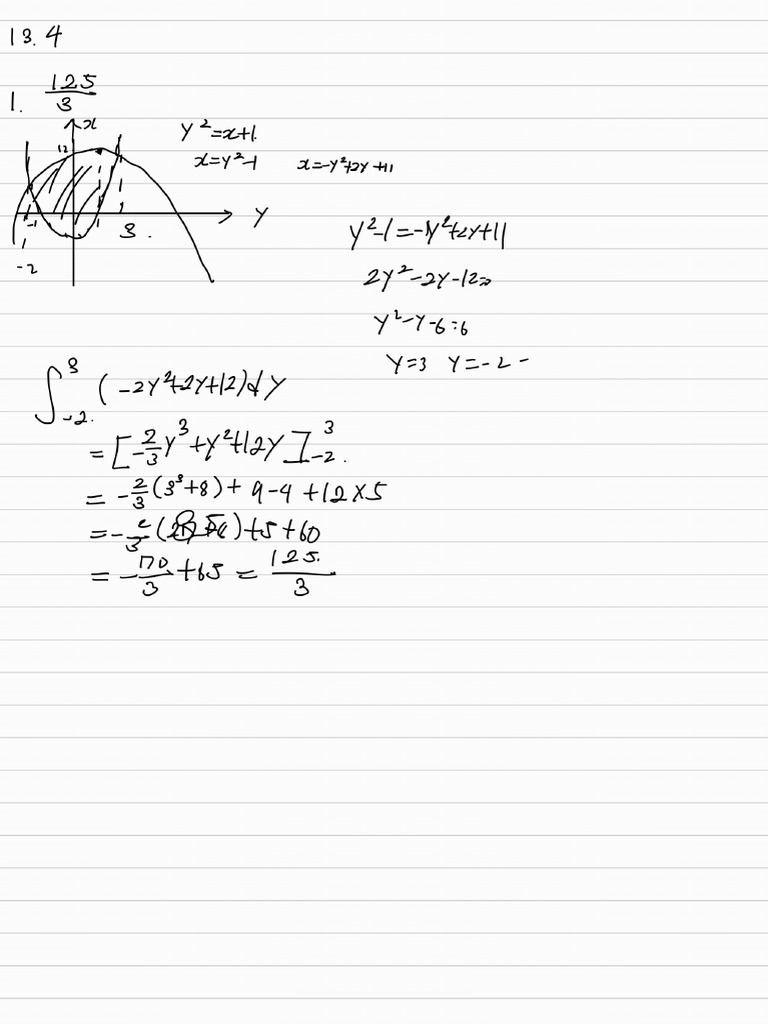 13.4
1. 125/3
x
12
y² = x+1.
x = y²-1 x = -y²+2y+11
-1 3. y
-2
y²-1 = -y²+2y+11
2y²-2y-12=0
y²-y-6=6
y=3 y=-2-
∫₋₂.³ (-2y²+2y+12)dy
= [-2/3 y³+y²+12y]³₋₂.
= -2/3(3³+8)+9-4+12×5
= -2/3( )+5+60
= -70/3+65 = 125/3